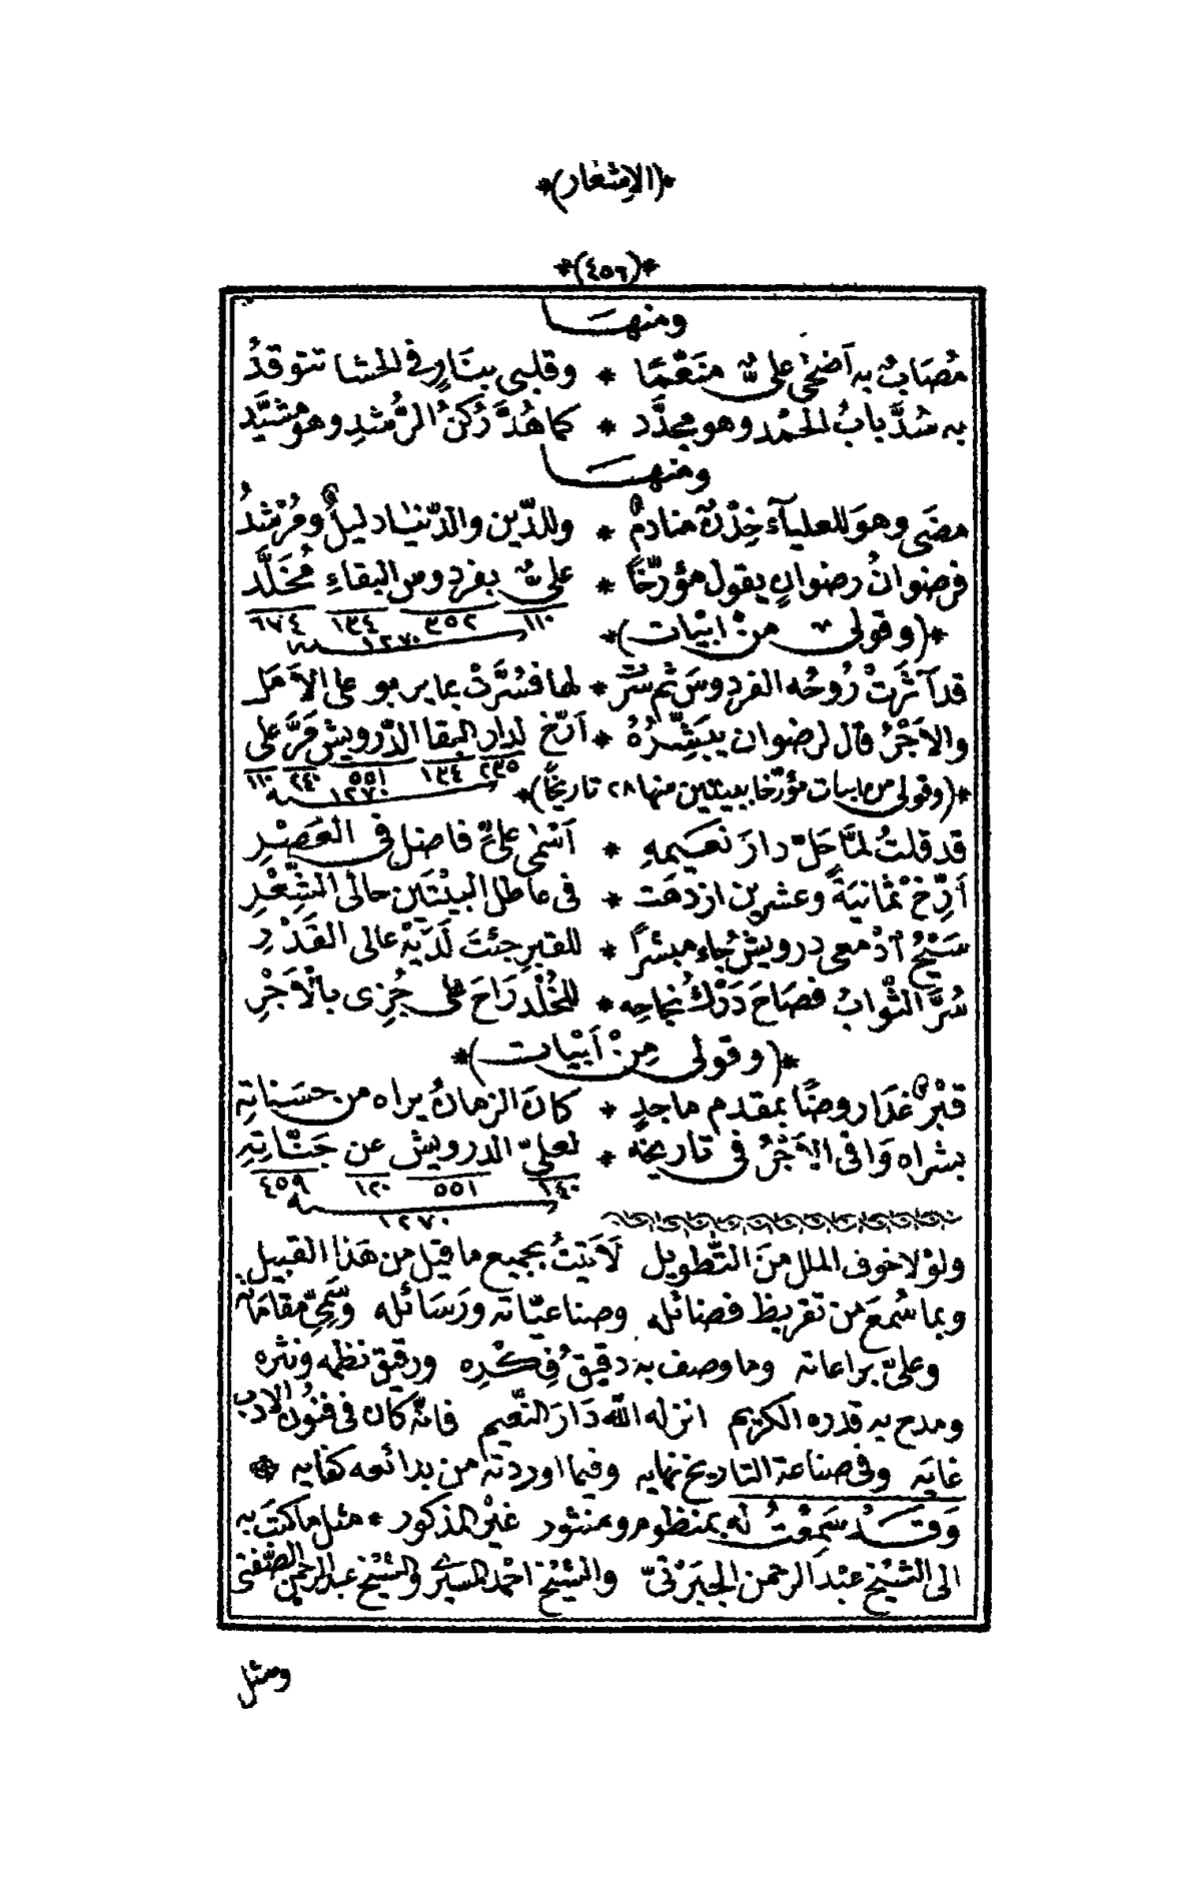 *(الاشعار)*
*(٤٥٦)*
ومنها
مُصَابٌ به اَضحىٰ علىٌّ منَعَّمًا * وقلبى بِنَارٍ فى الحشا تتوقدُ
به سُدَّ بابُ الحمْد وهو مجدَّد * كما هُدَّ رُكنُ الرُّشدِ وهو مشيَّد
ومنها
مضَى وهوَ للعليآء خِدْنٌ منادمٌ * وللدّين والدّنيا دليلٌ ومُرْشدُ
فرضوانُ رضوانٍ يقول مؤرّخًا * علىٌّ بفردوس البقاءِ مُخَلَّد
١١٠ ٣٥٢ ١٣٤ ٦٧٤
١٢٧٠ سنة
*(وقولى من ابيات)*
قد آثرَتْ رُوحُه الفردوسَ ثم سُرَّت * لها فسُرَّتْ بما يربو على الاَمَل
والاَجْرُ قال لرضوان يبَشِّرُهُ * اَرّخ لدار البقا الدّرويش قَرَّ على
٢٣٥ ١٣٤ ٥٥١ ٢٤٠ ١١٠
١٢٧٠ سنة
*(وقولى من ابيات مؤرّخا ببيتين منها ٢٨ تاريخًا)*
قد قلتُ لمَّا حَلّ دارَ نَعيمهِ * اَسْمٰى علىٌّ فاضل فى العَصْرِ
اَرِّخْ ثمَانيَةً وعشرين ازدهَت * فى عاطل البيْتَين حالى الشِّعْرِ
سَيْحُ اَدْمعى درويشُ جاء مبشرًا * للقبرِ جئتَ لَدَيْهِ عالى القَدْرِ
سُرَّ الثّوابُ فصَاحَ دَرْكُ نجاحِه * للخُلْد رَاحَ على جُزِى بالْاَجْرِ
*(وقولى مِنْ اَبْيات)*
قبْرٌ غدَا روضًا بمقدم ماجدٍ * كانَ الزمانُ يراه من حسَناتهِ
بشراه وَافى الاَجْرُ فى تاريخه * لعلىّ الدرويش عن جَنّاتِهِ
١٤٠ ٥٥١ ١٢٠ ٤٥٩
١٢٧٠ سنة
ولوْلا خوف الملل منَ التَّطويل لَاَتيْتُ بجميع ما قيل من هَذا القبيل
وبما سُمعَ من تقريظ فضائله وصناعيّاته ورَسَائله وسَمِىّ مقامَاته
وعلىّ براعاته وما وصف به دقيقُ فِكْرِه ورقيق نظمه ونثره
ومدح به قدره الكريم انزله اللّه دَارَ النّعيم فانّه كان فى فنُون الادب
غايَه وفى صناعة التاريخ نهايه وفيما اوردته من بدائعه كفايه *
وَقَد سَمِعْتُ له بمنظوم ومنثور غيْر المذكور * مثل ما كتَبَ به
الى الشيْخ عبْد الرحمن الجبَرْتىّ والشيْخ احْمد والشيْخ عبد الرحمن الصَّفتى
ومثل